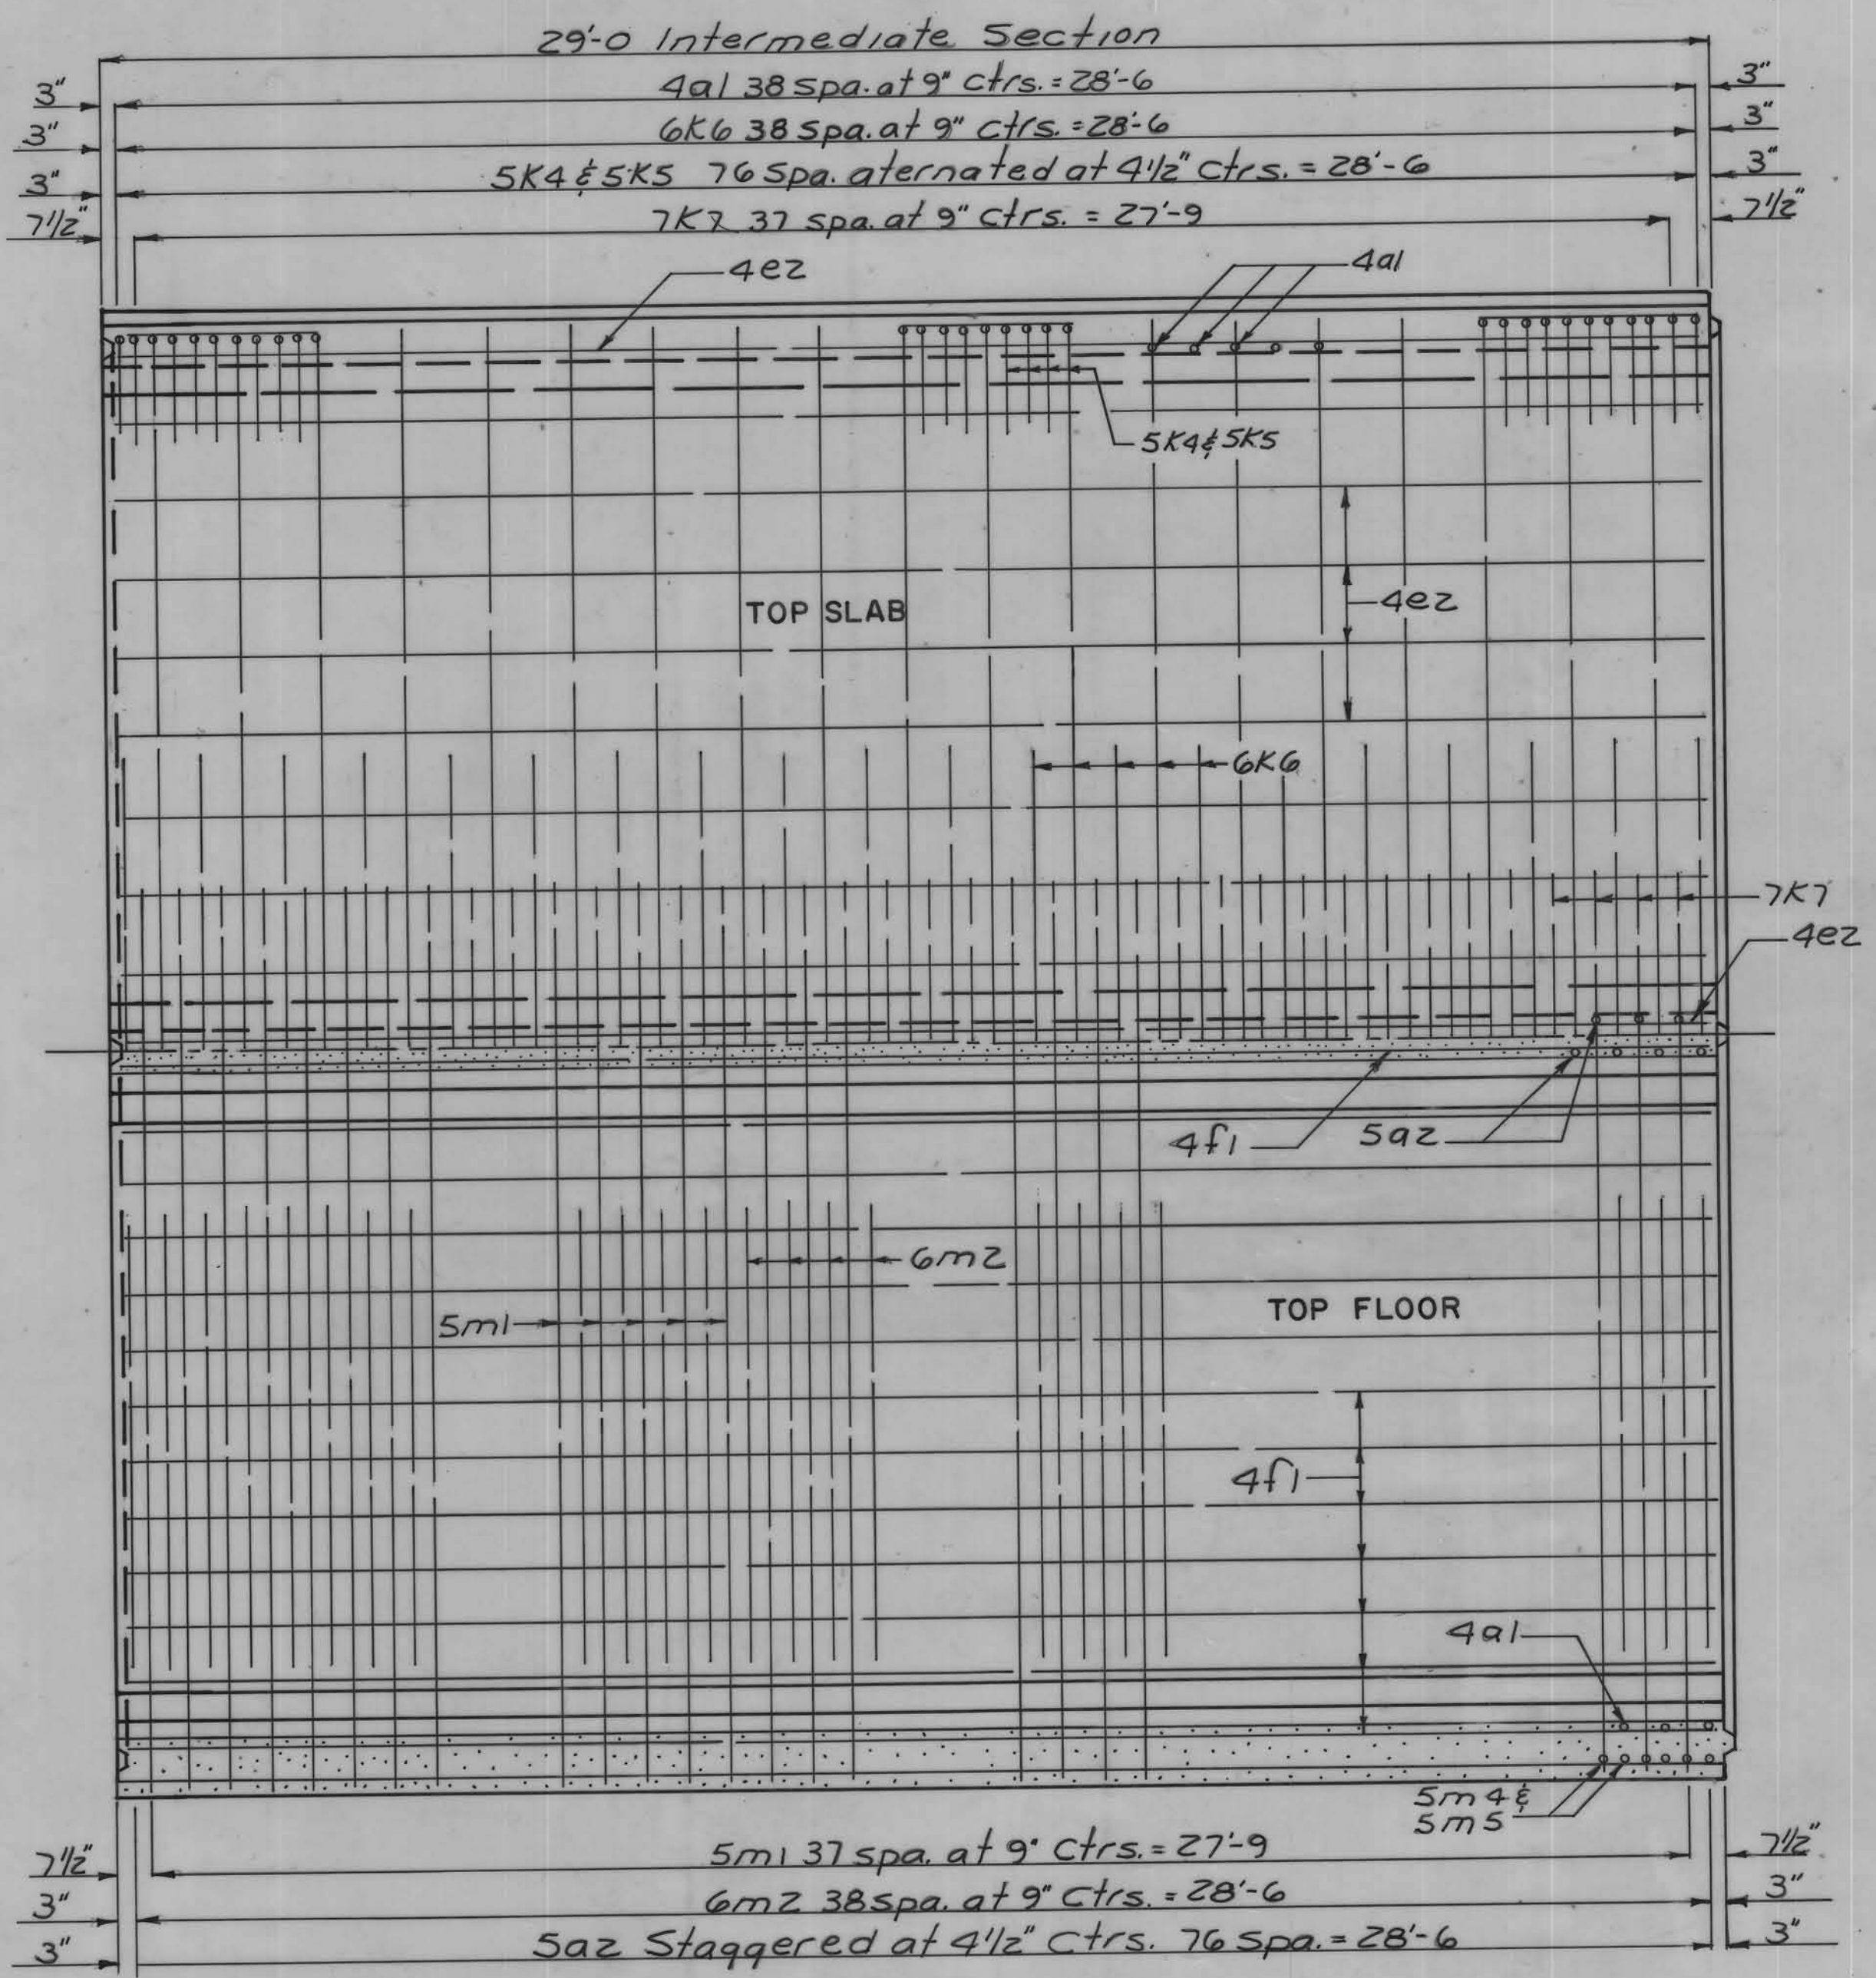 29'-0 Intermediate Section
3" 4a1 38 spa. at 9" Ctrs. = 28'-6 3"
3" 6K6 38 spa. at 9" Ctrs. = 28'-6 3"
3" 5K4 & 5K5 76 Spa. aternated at 4 1/2" Ctrs. = 28'-6 3"
7 1/2" 7K7 37 spa. at 9" Ctrs. = 27'-9 7 1/2"
4e2
4a1
5K4 & 5K5
TOP SLAB
4e2
6K6
7K7
4e2
4f1
5a2
6m2
5m1
TOP FLOOR
4f1
4a1
5m4 &
5m5
7 1/2" 5m1 37 spa. at 9" Ctrs. = 27'-9 7 1/2"
3" 6m2 38 spa. at 9" Ctrs. = 28'-6 3"
3" 5a2 Staggered at 4 1/2" Ctrs. 76 Spa. = 28'-6 3"